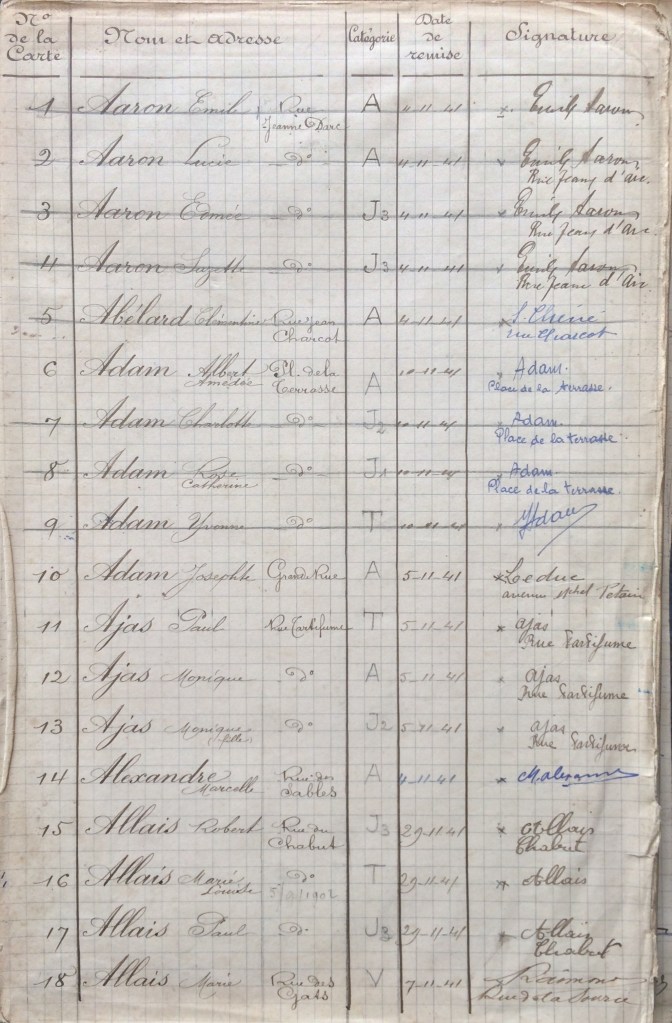 No de la Carte Nom et Adresse Catégorie Date de remise Signature
1 Aaron Emile Rue Jeanne Darc A 4-11-41 Emile Aaron
2 Aaron Lucie do A 4-11-41 Emile Aaron Rue Jeanne d'arc
3 Aaron Edmée do J3 4-11-41 Emile Aaron Rue Jeanne d'arc
4 Aaron Suzette do J3 4-11-41 Emile Aaron Rue Jeanne d'arc
5 Abélard Clémentine Rue Jean Charcot A 4-11-41 rue Charcot
6 Adam Albert Amédée Pl. de la Terrosse A 10-11-41 Adam. Place de la terrasse.
7 Adam Charlotte do J2 10-11-41 Adam. Place de la terrasse.
8 Adam Rose Catherine do J1 10-11-41 Adam. Place de la terrasse.
9 Adam Yvonne do T 10-11-41 YAdam
10 Adam Josephte Grande Rue A 5-11-41 Leduc avenue Mchel Petain
11 Ajas Paul Rue Tartifume T 5-11-41 ajas Rue Tartifume
12 Ajas Monique do A 5-11-41 ajas Rue Tartifume
13 Ajas Monique Mlle do J2 5-11-41 ajas Rue Tartifume
14 Alexandre Marcelle Rue des Sables A 4-11-41
15 Allais Robert Rue du Chabut J3 29-11-41 Allais Chabut
16 Allais Marie Louise do T 29-11-41 Allais
17 Allais Paul do J3 29-11-41 Allais Chabut
18 Allais Marie Rue des Gats V 7-11-41 Rue de la Source